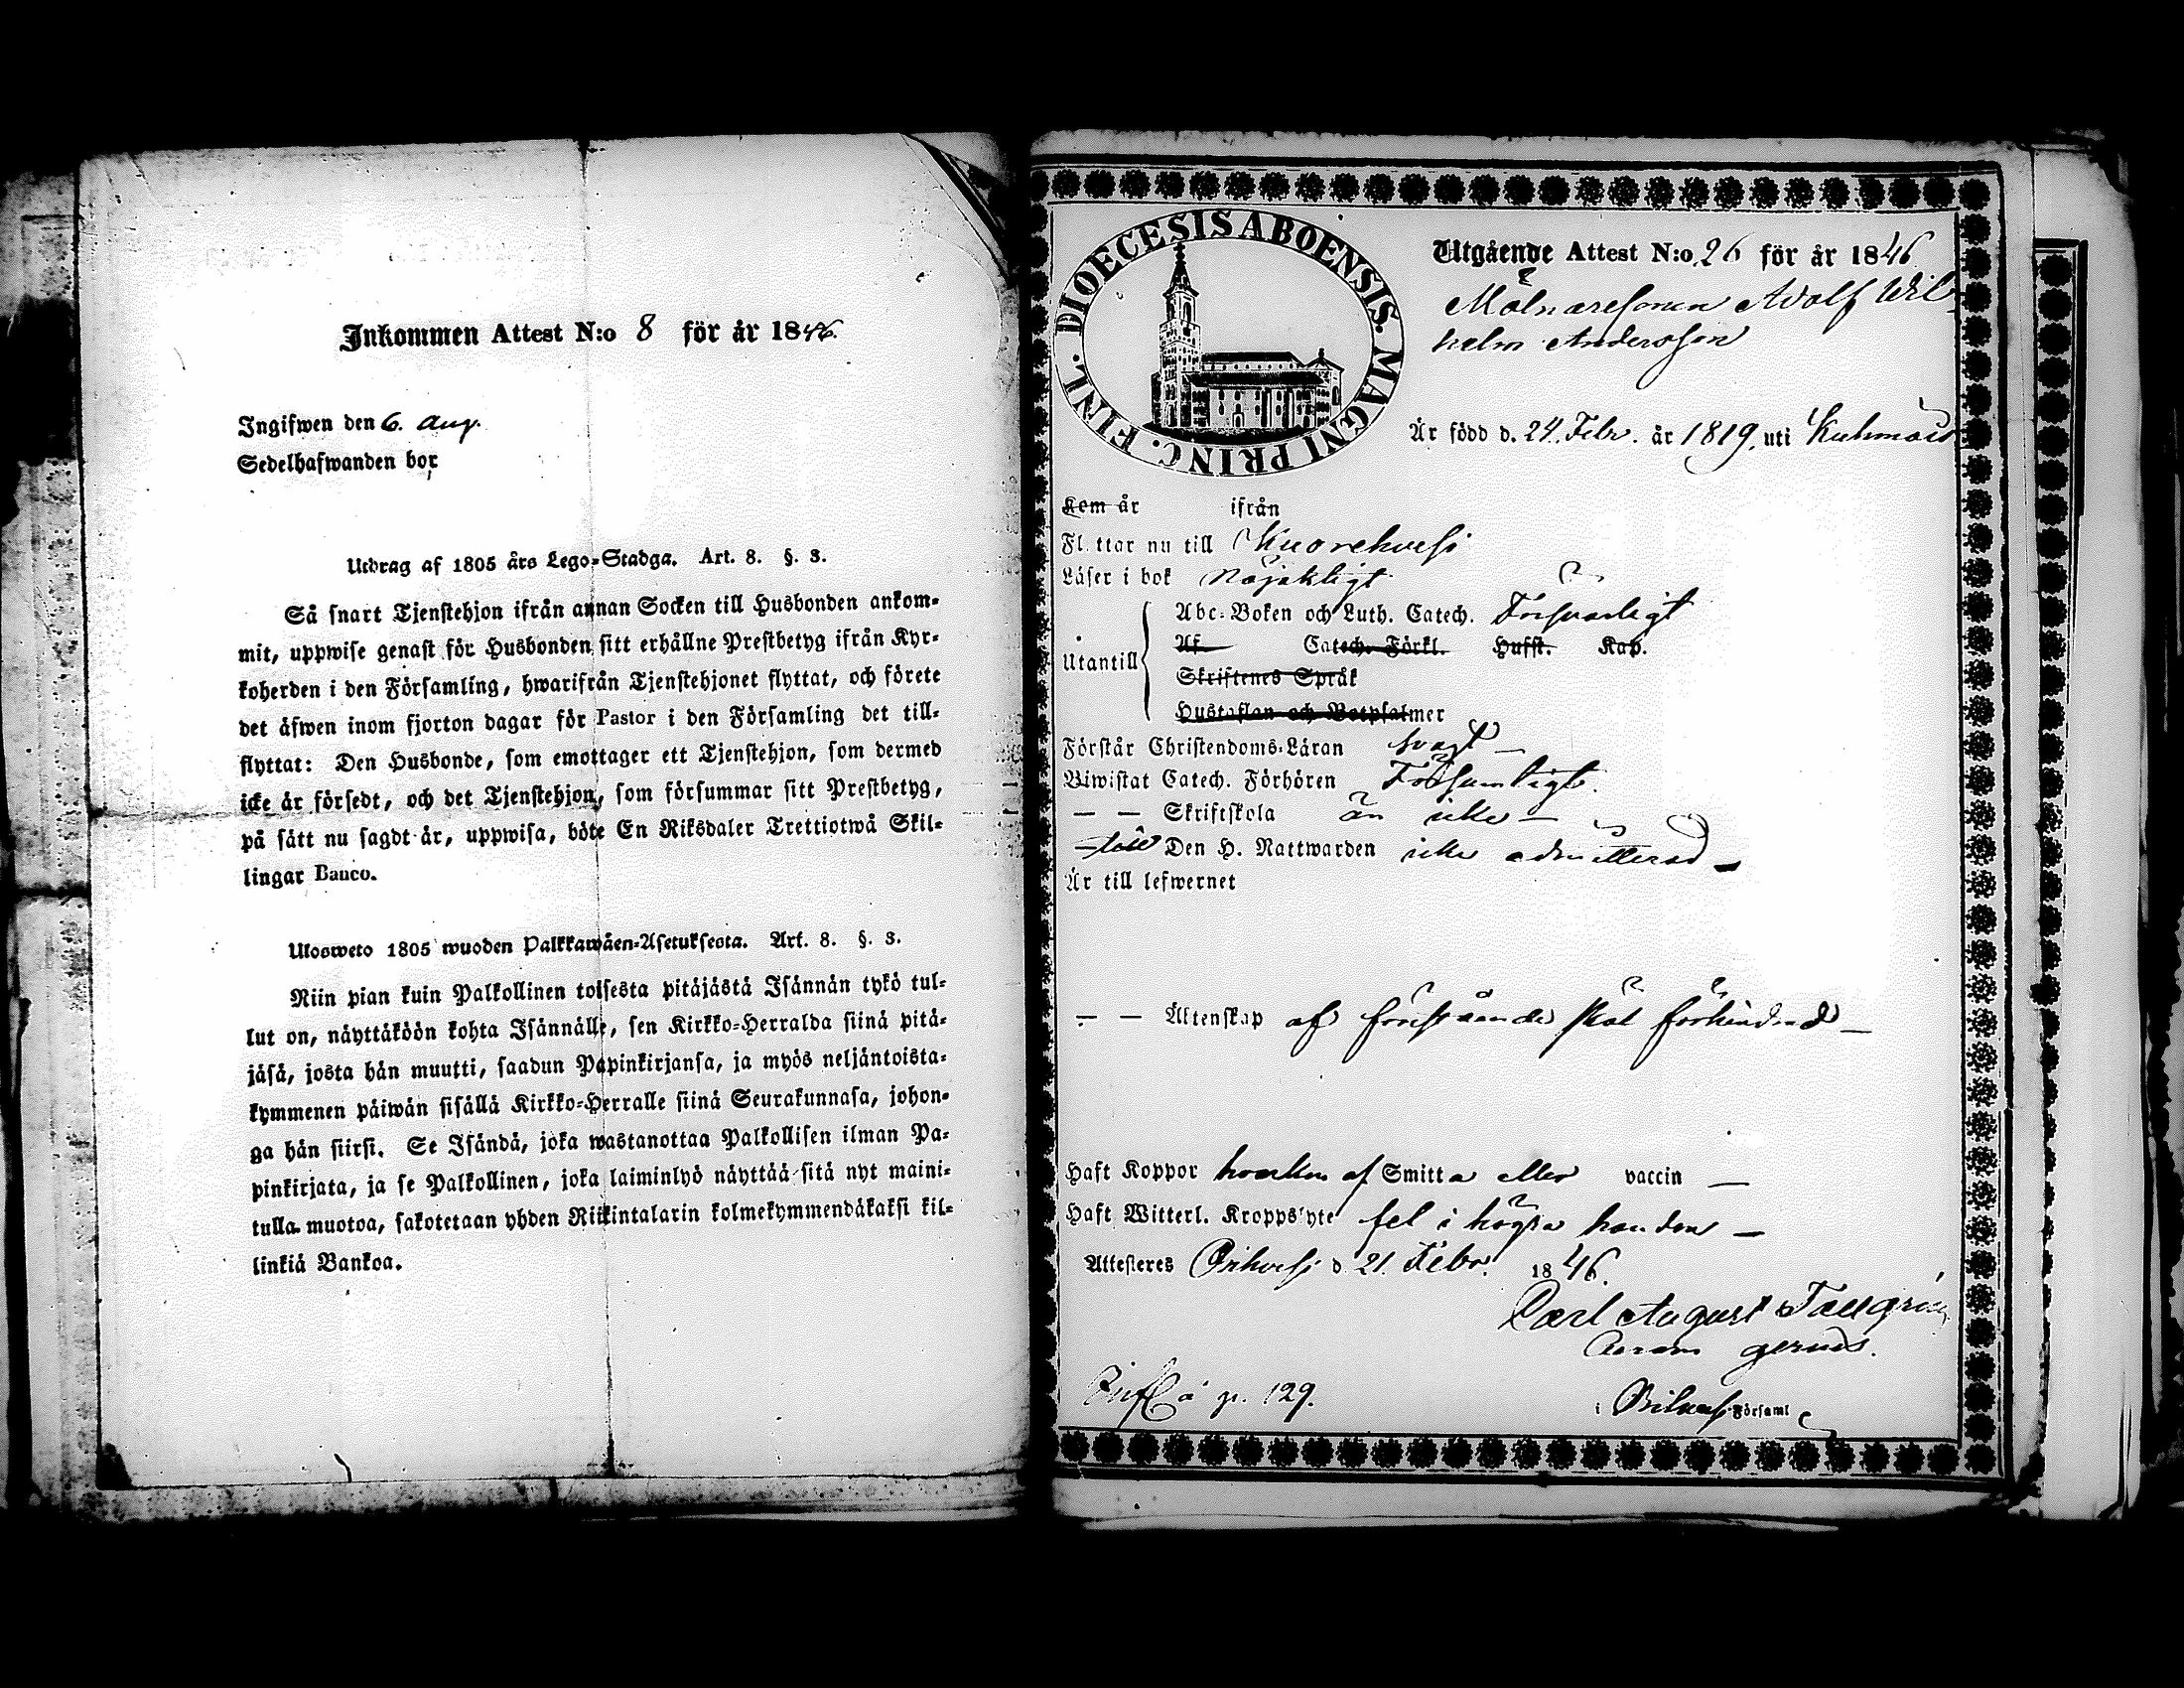 Inkommen Attest N:o 8 för år 1846.
Ingifwen den 6. Aug.
Sedelhafwanden bor
Utdrag af 1805 års Lego-Stadga. Art. 8. §. 3.
Så snart Tjenstehjon ifrån annan Socken till Husbonden ankom-
mit, uppwise genast för Husbonden sitt erhållne Prestbetyg ifrån Kyr-
koherden i den Församling, hwarifrån Tjenstehjonet flyttat, och förete
det äfwen inom fjorton dagar för Pastor i den Församling det till-
flyttat: Den Husbonde, som emottager ett Tjenstehjon, som dermed
icke är försedt, och det Tjenstehjon, som försummar sitt Prestbetyg,
på sätt nu sagdt är, uppwisa, böte En Riksdaler Trettiotwå Skil-
lingar Banco.
Ulosweto 1805 wuoden Palkkawäen-Asetuksesta. Art. 8. §. 3.
Niin pian kuin Palkollinen toisesta pitäjästä Isännän tykö tul-
lut on, näyttäköön kohta Isännälle, sen Kirkko-Herralda siinä pitä-
jäsä, josta hän muutti, saadun Papinkirjansa, ja myös neljäntoista-
kymmenen päiwän sisällä Kirkko-Herralle siinä Seurakunnasa, johon-
ga hän siirsi. Se Isändä, joka wastanottaa Palkollisen ilman Pa-
pinkirjata, ja se Palkollinen, joka laiminlyö näyttää sitä nyt maini-
tulla muotoa, sakotetaan yhden Riikintalarin kolmekymmendäkaksi kil-
linkiä Bankoa.
DIOECESIS ABOENSIS. MAGNI PRINC. FINL.
Utgående Attest N:o 26 för år 1846
Mölnaresonen Adolf Wil-
helm Andersson
Är född d. 24. Febr. år 1819. uti Kuhmois
Kom år ifrån
Flyttar nu till Kuorehvesi
Läser i bok Nöjaktigt
Utantill
Abc-Boken och Luth. Catech. Försvarligt
Af Catech. Förkl. Hufst. Kap.
Skriftenes Språk
Hustaflan och Botpsalmer
Förstår Christendoms-Läran svagt —
Biwistat Catech. Förhören Försumligt.
— — Skriftskola än icke —
— till Den H. Nattwarden icke admitterad —
Är till lefwernet
— — Äktenskap af förestående skäl förhindrad —
Haft Koppor hvarken af Smitta eller vaccin —
Haft Witterl. Kroppslyte fel i högra handen —
Attesteres Orihvesi d. 21. Febr. 1846.
Carl August Tallgrén
gerens.
å p. 129.
i Orihvesi Församl